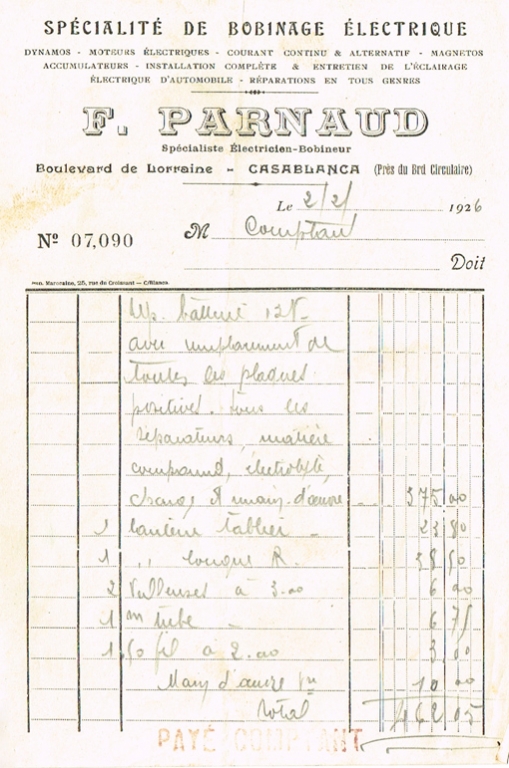 SPÉCIALITÉ DE BOBINAGE ÉLECTRIQUE
DYNAMOS - MOTEURS ÉLECTRIQUES - COURANT CONTINU & ALTERNATIF - MAGNETOS
ACCUMULATEURS - INSTALLATION COMPLÈTE & ENTRETIEN DE L'ÉCLAIRAGE
ÉLECTRIQUE D'AUTOMOBILE - RÉPARATIONS EN TOUS GENRES
F. PARNAUD
Spécialiste Électricien-Bobineur
Boulevard de Lorraine - CASABLANCA (Près du Brd Circulaire)
Le 2/2/ 1926
Nº 07,090 M Comptant
Doit
25, rue du Croissant - C/Blanca
Rép. batterie 12V
avec remplacement de
toutes les plaques
positives. tous les
séparateurs, matière
compound, électrolyte,
charge et main d'œuvre -- 375 00
1 lanterne tablier - 23 80
1 ,, R. 38 50
2 à 3.00 6 00
1 m tube - 6 75
1.50 fil à 2.00 3 00
Main d'œuvre 10 00
Total 462 05
PAYÉ COMPTANT